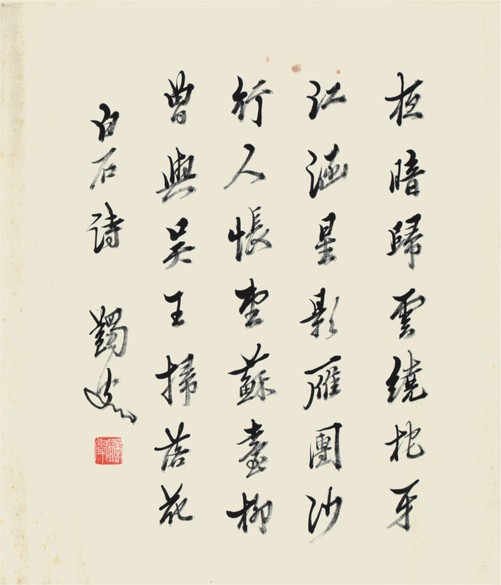 暗歸雲繞柁牙
江涵星影雁團沙
行人悵望蘇臺柳
曾與吳王掃落花
白石詩 蠲叟